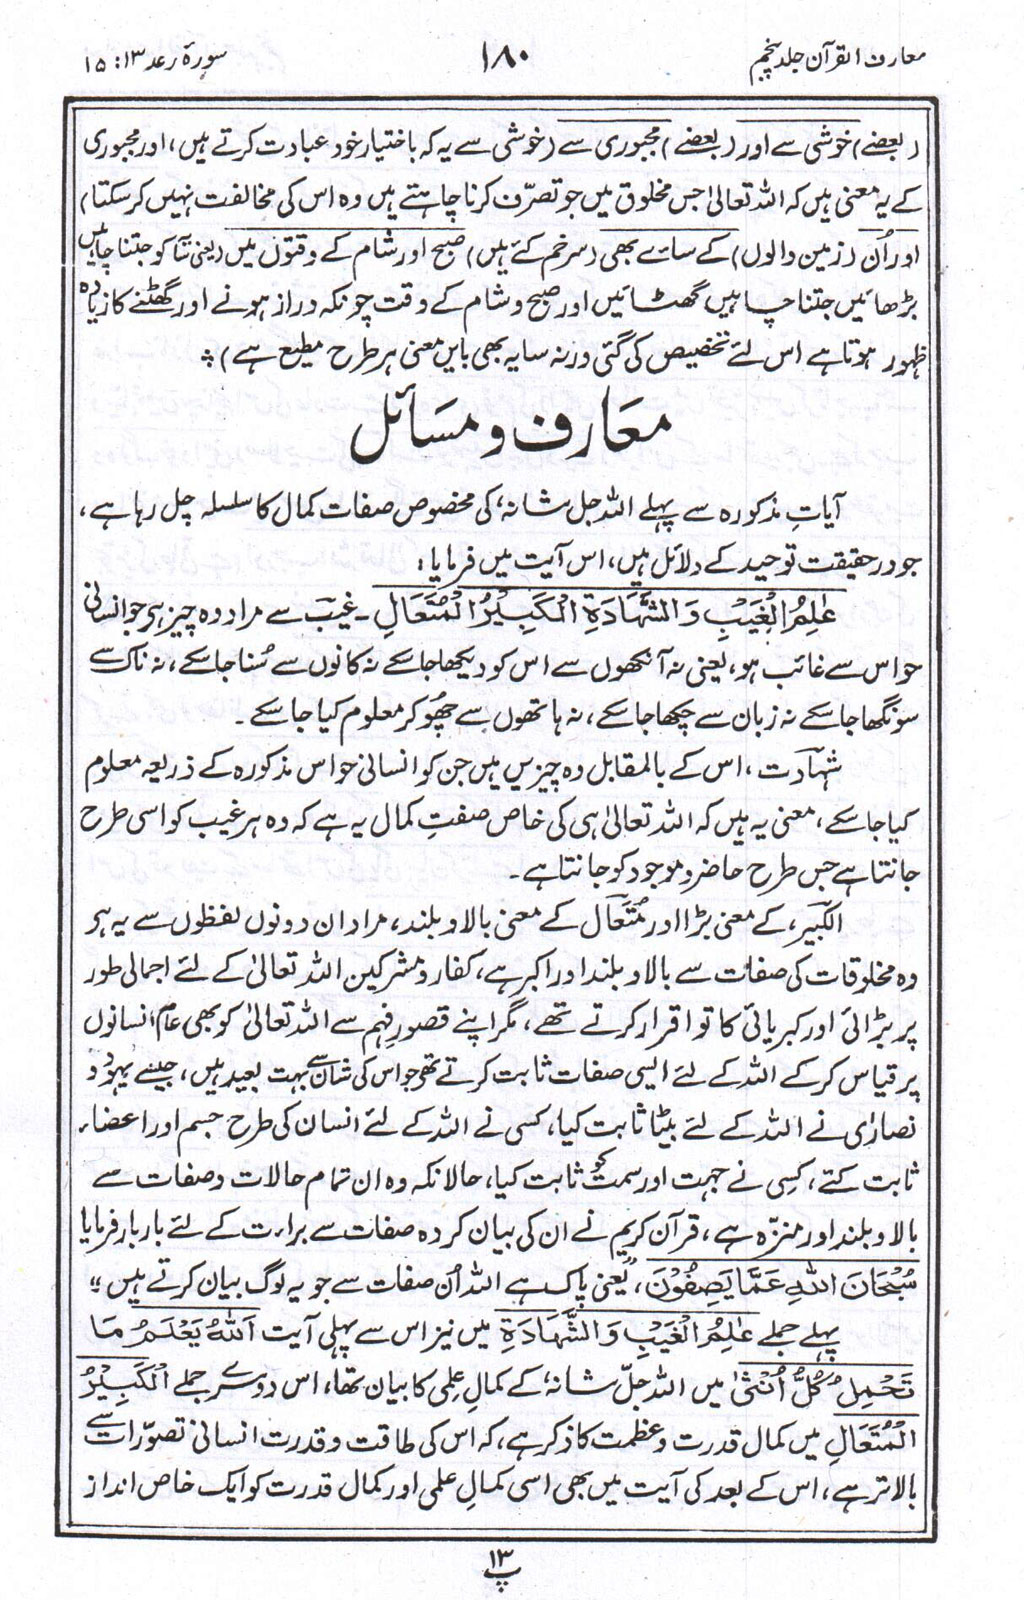 معارف القرآن جلد پنجم
۱۸۰
سورۂ رعد ۱۳: ۱۵
(بعضے) خوشی سے اور (بعضے) مجبوری سے (خوشی سے یہ کہ باختیار خود عبادت کرتے ہیں، اور مجبوری
کے یہ معنی ہیں کہ اللہ تعالیٰ جس مخلوق میں جو تصرّف کرنا چاہتے ہیں وہ اس کی مخالفت نہیں کر سکتا)
اور اُن (زمین والوں) کے سائے بھی (سرخم کئے ہیں) صبح اور شام کے وقتوں میں (یعنی سایہ کو جتنا چاہیں
بڑھائیں جتنا چاہیں گھٹائیں اور صبح و شام کے وقت چونکہ دراز ہونے اور گھٹنے کا زیادہ
ظہور ہوتا ہے اس لئے تخصیص کی گئی ورنہ سایہ بھی بایں معنی ہر طرح مطیع ہے) ؞
معارف و مسائل
آیاتِ مذکورہ سے پہلے اللہ جل شانہ، کی مخصوص صفات کمال کا سلسلہ چل رہا ہے،
جو درحقیقت توحید کے دلائل ہیں، اس آیت میں فرمایا:
عٰلِمُ الْغَیْبِ وَ الشَّهَادَةِ الْكَبِیْرُ الْمُتَعَالِ۔ غیب سے مراد وہ چیز ہی جو انسانی
حواس سے غائب ہو، یعنی نہ آنکھوں سے اس کو دیکھا جا سکے نہ کانوں سے سُنا جا سکے، نہ ناک سے
سونگھا جا سکے نہ زبان سے چکھا جا سکے، نہ ہاتھوں سے چھو کر معلوم کیا جا سکے۔
شہادت، اس کے بالمقابل وہ چیزیں ہیں جن کو انسانی حواس مذکورہ کے ذریعہ معلوم
کیا جا سکے، معنی یہ ہیں کہ اللہ تعالیٰ ہی کی خاص صفتِ کمال یہ ہے کہ وہ ہر غیب کو اسی طرح
جانتا ہے جس طرح حاضر و موجود کو جانتا ہے۔
الکبیر، کے معنی بڑا اور مُتَعَال کے معنی بالا و بلند، مراد ان دونوں لفظوں سے یہ ہر
وہ مخلوقات کی صفات سے بالا و بلند اور اکبر ہے، کفار و مشرکین اللہ تعالیٰ کے لئے اجمالی طور
پر بڑائی اور کبریائی کا تو اقرار کرتے تھے، مگر اپنے قصورِ فہم سے اللہ تعالیٰ کو بھی عام انسانوں
پر قیاس کر کے اللہ کے لئے ایسی صفات ثابت کرتے تھے جو اس کی شان سے بہت بعید ہیں، جیسے یہود و
نصارٰی نے اللہ کے لئے بیٹا ثابت کیا، کسی نے اللہ کے لئے انسان کی طرح جسم اور اعضاء
ثابت کئے، کسی نے جہت اور سمت کو ثابت کیا، حالانکہ وہ ان تمام حالات و صفات سے
بالا و بلند اور منزّہ ہے، قرآن کریم نے ان کی بیان کردہ صفات سے براءت کے لئے بار بار فرمایا
سُبْحَانَ اللهِ عَمَّا یَصِفُوْنَ، "یعنی پاک ہے اللہ اُن صفات سے جو یہ لوگ بیان کرتے ہیں"
پہلے جملے عٰلِمُ الْغَیْبِ وَ الشَّهَادَةِ میں نیز اس سے پہلی آیت اَللهُ یَعْلَمُ مَا
تَحْمِلُ كُلُّ اُنْثٰی میں اللہ جلّ شانہ، کے کمالِ علمی کا بیان تھا، اس دوسرے جملے الْكَبِیْرُ
الْمُتَعَالِ میں کمال قدرت و عظمت کا ذکر ہے، کہ اس کی طاقت و قدرت انسانی تصوّرات سے
بالاتر ہے، اس کے بعد کی آیت میں بھی اسی کمالِ علمی اور کمال قدرت کو ایک خاص انداز
پ ۱۳